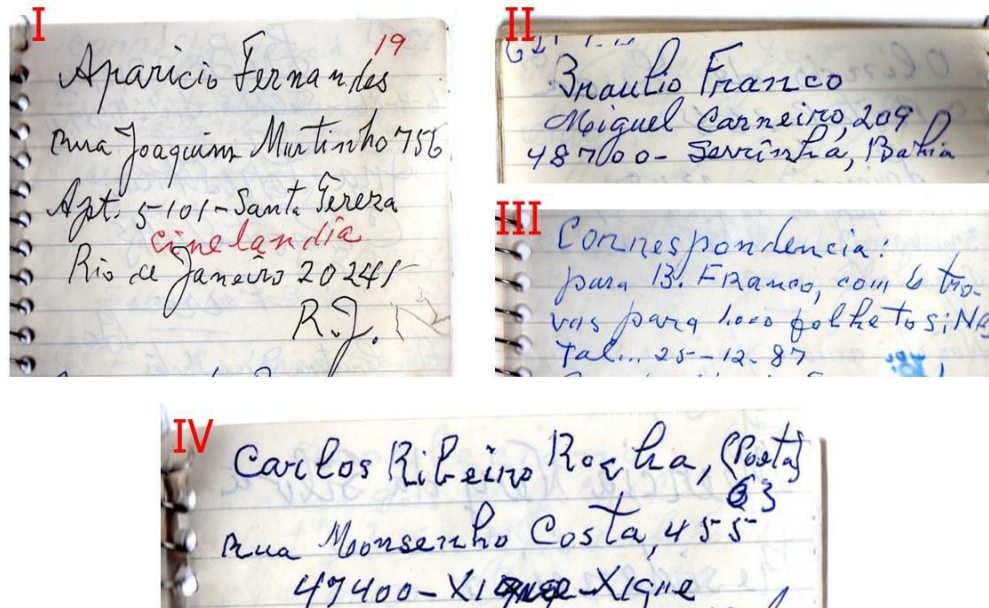 I
19
Aparicio Fernandes
rua Joaquim Murtinho 756
Apt. S-101-Santa Tereza
Cinelandia
Rio de Janeiro 20241
R.J.
II
Braulio Franco
Miguel Carneiro, 209
48700- Serrinha, Bahia
III
Correspondencia:
para B. Franco, com 6 tro-
vas para 1.000 folhetos; Na
tal... 25-12-87
IV
Carlos Ribeiro Rocha, (Poeta)
63
rua Monsenho Costa, 455
47400-Xique-Xique